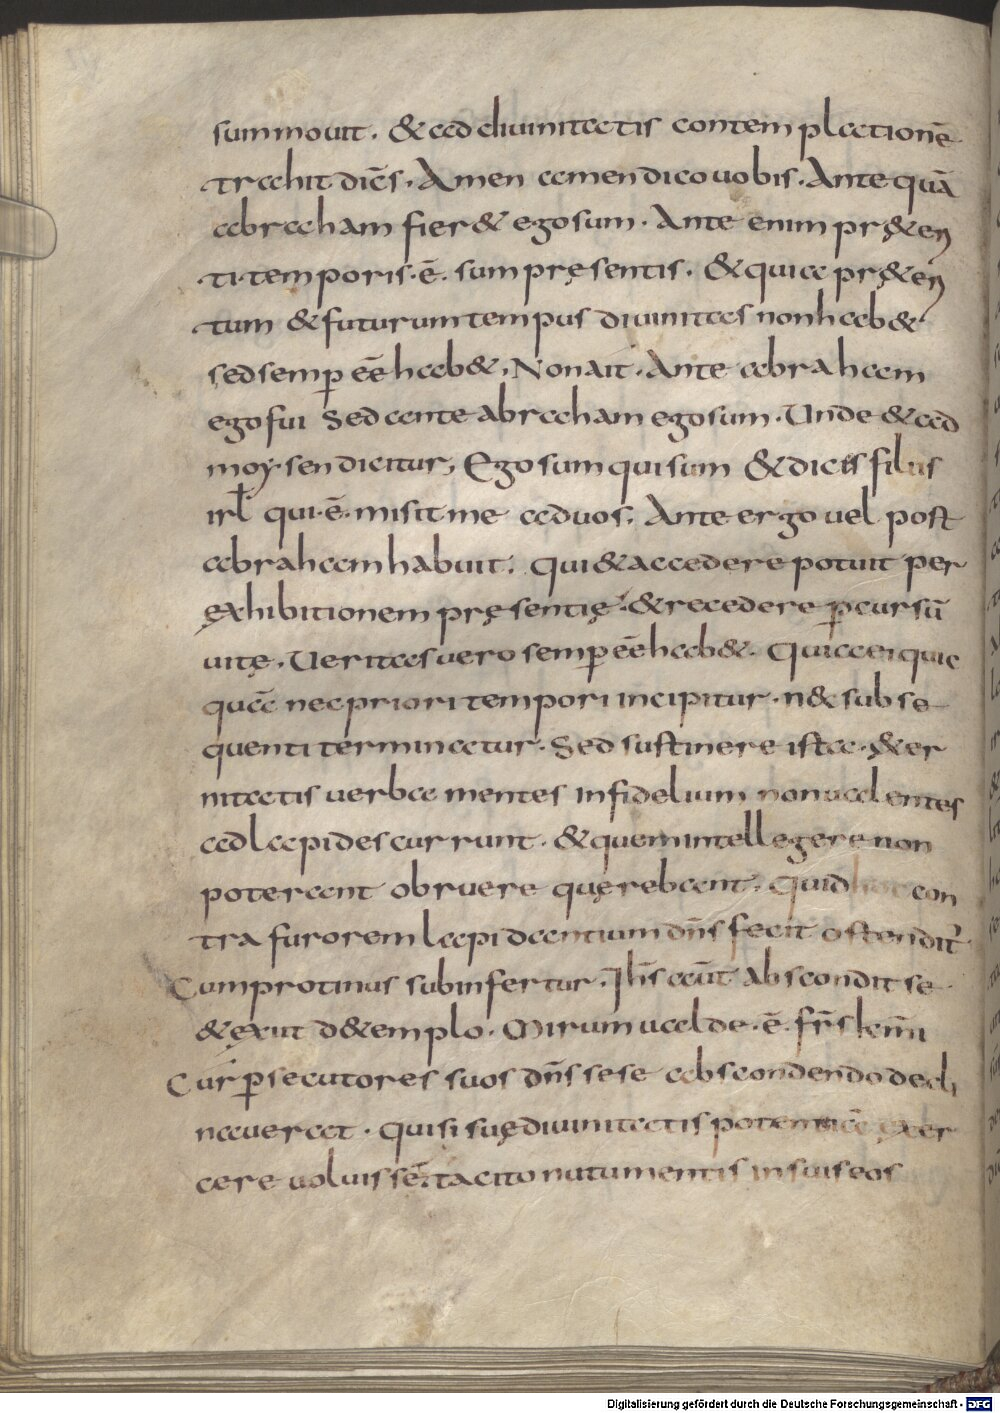 summouit. & addiuinitatis contemplationē
trahit diēs. Amen amen dico uobis. Ante quā
abraham fier& ego sum. Ante enim pr&eri
ti temporis. ē. sum pręsentis. & quia pr&eri
tum & futurum tempus diuinitas non hab&
sed semp̄ eē hab&, Non ait. Ante abraham
ego fui Sed ante abraham ego sum. Unde & ad
moysen dicitur, Ego sum qui sum & dicis filiis
irl̄ qui. ē. misit me ad uos. Ante ergo uel post
abraham habuit. qui & accedere potuit per
exhibitionem pręsentię. & recedere p̄ cursū
uitę. Ueritas uero semp̄ eē hab&. Quia ei quic
quā nec priori tempori incipitur. n& subse
quenti terminatur. Sed sustinere ista. &er
nitatis uerba mentes infidelium non ualentes
ad lapides currunt. & quem intellegere non
poterant obruere quęrebant. Quid hic con
tra furorem lapidantium dn̄s fecit ostenditr̄
Cum protinus subinfertur. Ih̄s aūt abscondit se
& exiit d& emplo. Mirum ualde. ē. fr̄s kmi
Cur p̄secutores suos dn̄s sese abscondendo decli
nauerat. qui si suę diuinitatis potentiā exer
cere uoluisset. tacito nutu mentis in suis eos